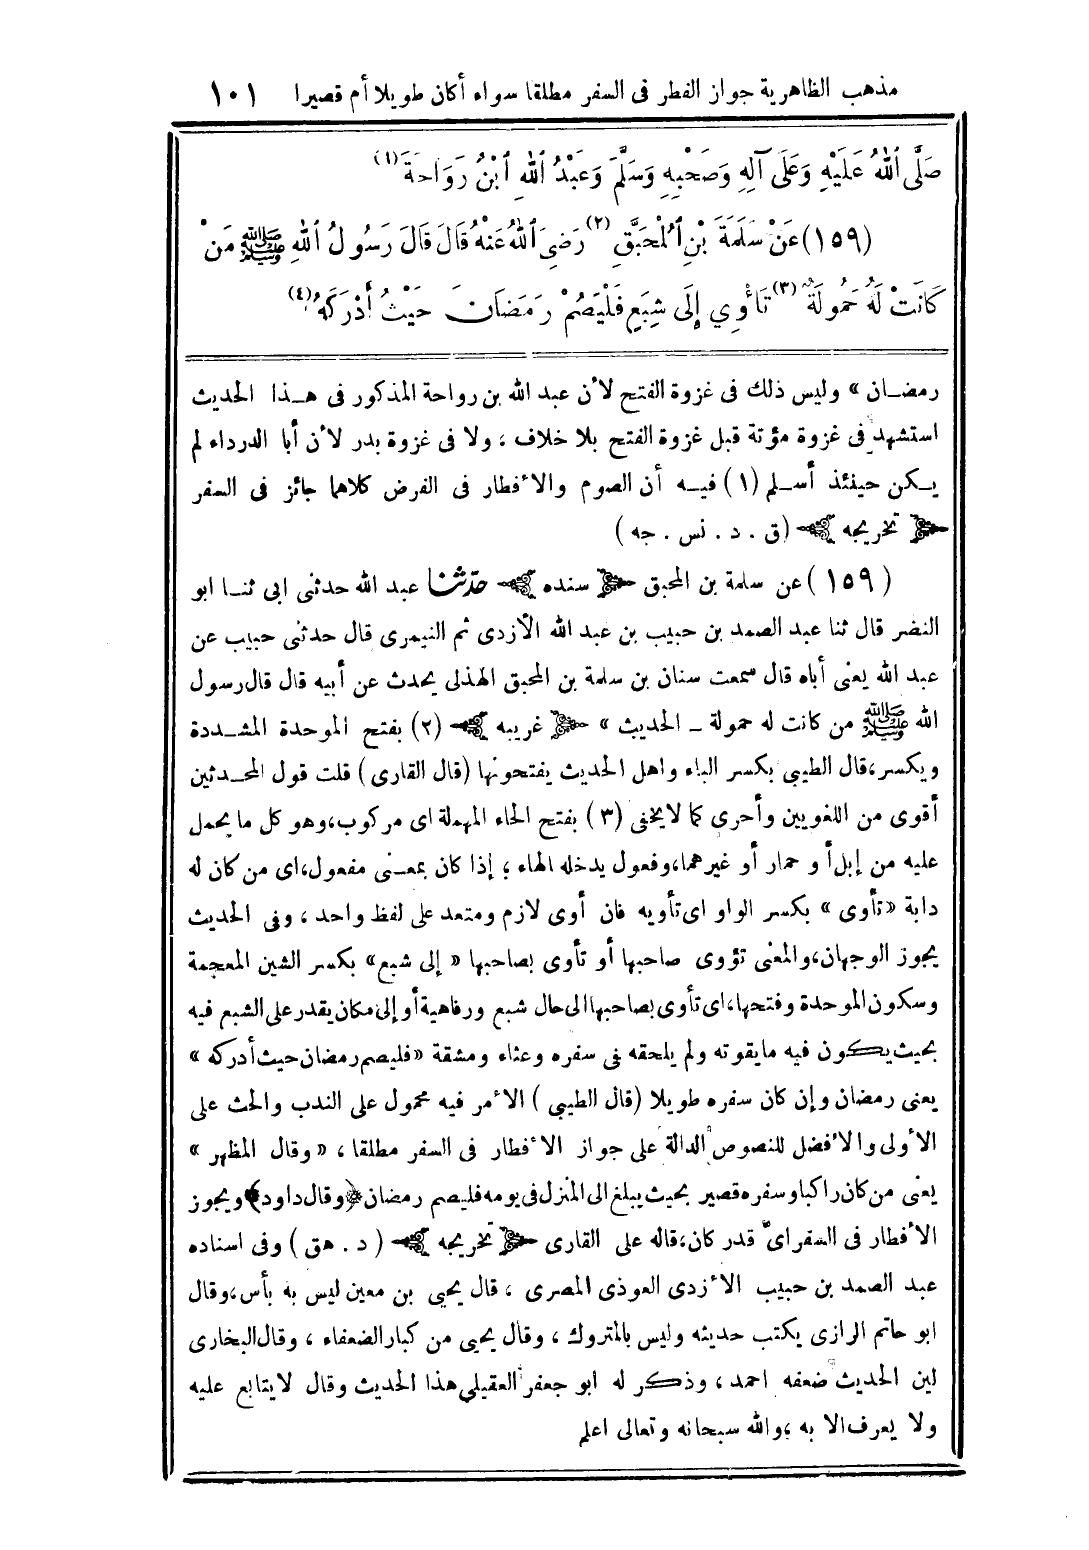 مذهب الظاهرية جواز الفطر فى السفر مطلقا سواء أكان طويلا أم قصيرا ١٠١
صَلَّى ٱللهُ عَلَيْهِ وَعَلَى آلِهِ وَصَحْبِهِ وَسَلَّمَ وَعَبْدُ ٱللهِ ٱبْنُ رَوَاحَةَ (١)
(١٥٩) عَنْ سَلَمَةَ بْنِ ٱلْمُحَبَّقِ (٢) رَضِىَ ٱللهُ عَنْهُ قَالَ قَالَ رَسُولُ ٱللهِ ﷺ مَنْ
كَانَتْ لَهُ حَمُولَةٌ (٣) تَأْوِي إِلَى شِبَعٍ فَلْيَصُمْ رَمَضَانَ حَيْثُ أَدْرَكَهُ (٤)
رمضـان » وليس ذلك فى غزوة الفتح لأن عبد الله بن رواحة المذكور فى هـذا الحديث
استشهد فى غزوة مؤتة قبل غزوة الفتح بلا خلاف ، ولا فى غزوة بدر لأن أبا الدرداء لم
يـكن حينئذ أسـلم (١) فيـه أن الصوم والأفطار فى الفرض كلاهما جائز فى السفر
﴿ تخريجه ﴾ (ق . د . نس . جه)
(١٥٩) عن سلمة بن المحبق ﴿ سنده ﴾ حدّثنا عبد الله حدثنى ابى ثنـا ابو
النضر قال ثنا عبد الصمد بن حبيب بن عبد الله الأزدى ثم النيمرى قال حدثنى حبيب عن
عبد الله يعنى أباه قال سمعت سنان بن سلمة بن المحبق الهذلى يحدث عن أبيه قال قال رسول
الله ﷺ من كانت له حمولة ـ الحديث » ﴿ غريبه ﴾ (٢) بفتح الموحدة المشـددة
ويكسر، قال الطيبى بكسر الباء واهل الحديث يفتحونها (قال القارى) قلت قول المحـدثين
أقوى من اللغويين وأحرى كما لا يخفى (٣) بفتح الحاء المهملة اى مركوب، وهو كل ما يحمل
عليه من إبل أو حمار أو غيرهما، وفعول يدخله الهاء ؛ إذا كان بمعـنى مفعول، اى من كان له
دابة «تأوى » بكسر الواو اى تأويه فان أوى لازم ومتعد على لفظ واحد ، وفى الحديث
يجوز الوجهان، والمعنى تؤوى صاحبها أو تأوى بصاحبها « إلى شبع» بكسر الشين المعجمة
وسكون الموحدة وفتحها، اى تأوى بصاحبها الى حال شبع ورفاهية أو إلى مكان يقدر على الشبع فيه
بحيث يـكون فيه ما يقوته ولم يلحقه فى سفره وعثاء ومشقة «فليصم رمضان حيث أدركه »
يعنى رمضان وإن كان سفره طويلا (قال الطيبى) الأمر فيه محمول على الندب والحث على
الأولى والأفضل للنصوص الدالة على جواز الأفطار فى السفر مطلقا ، « وقال المظهر »
يعنى من كان راكبا وسفره قصير بحيث يبلغ الى المنزل فى يومه فليصم رمضان ﴿وقال داود﴾ ويجوز
الأفطار فى السفر اىَّ قدر كان، قاله على القارى ﴿ تخريجه ﴾ (د . هق) وفى اسناده
عبد الصمد بن حبيب الأزدى العوذى المصرى ، قال يحيى بن معين ليس به بأس، وقال
ابو حاتم الرازى يكتب حديثه وليس بالمتروك ، وقال يحيى من كبار الضعفاء ، وقال البخارى
لين الحديث ضعفه احمد ، وذكر له ابو جعفر العقيلى هذا الحديث وقال لا يتابع عليه
ولا يعرف الا به ؛ والله سبحانه وتعالى اعلم